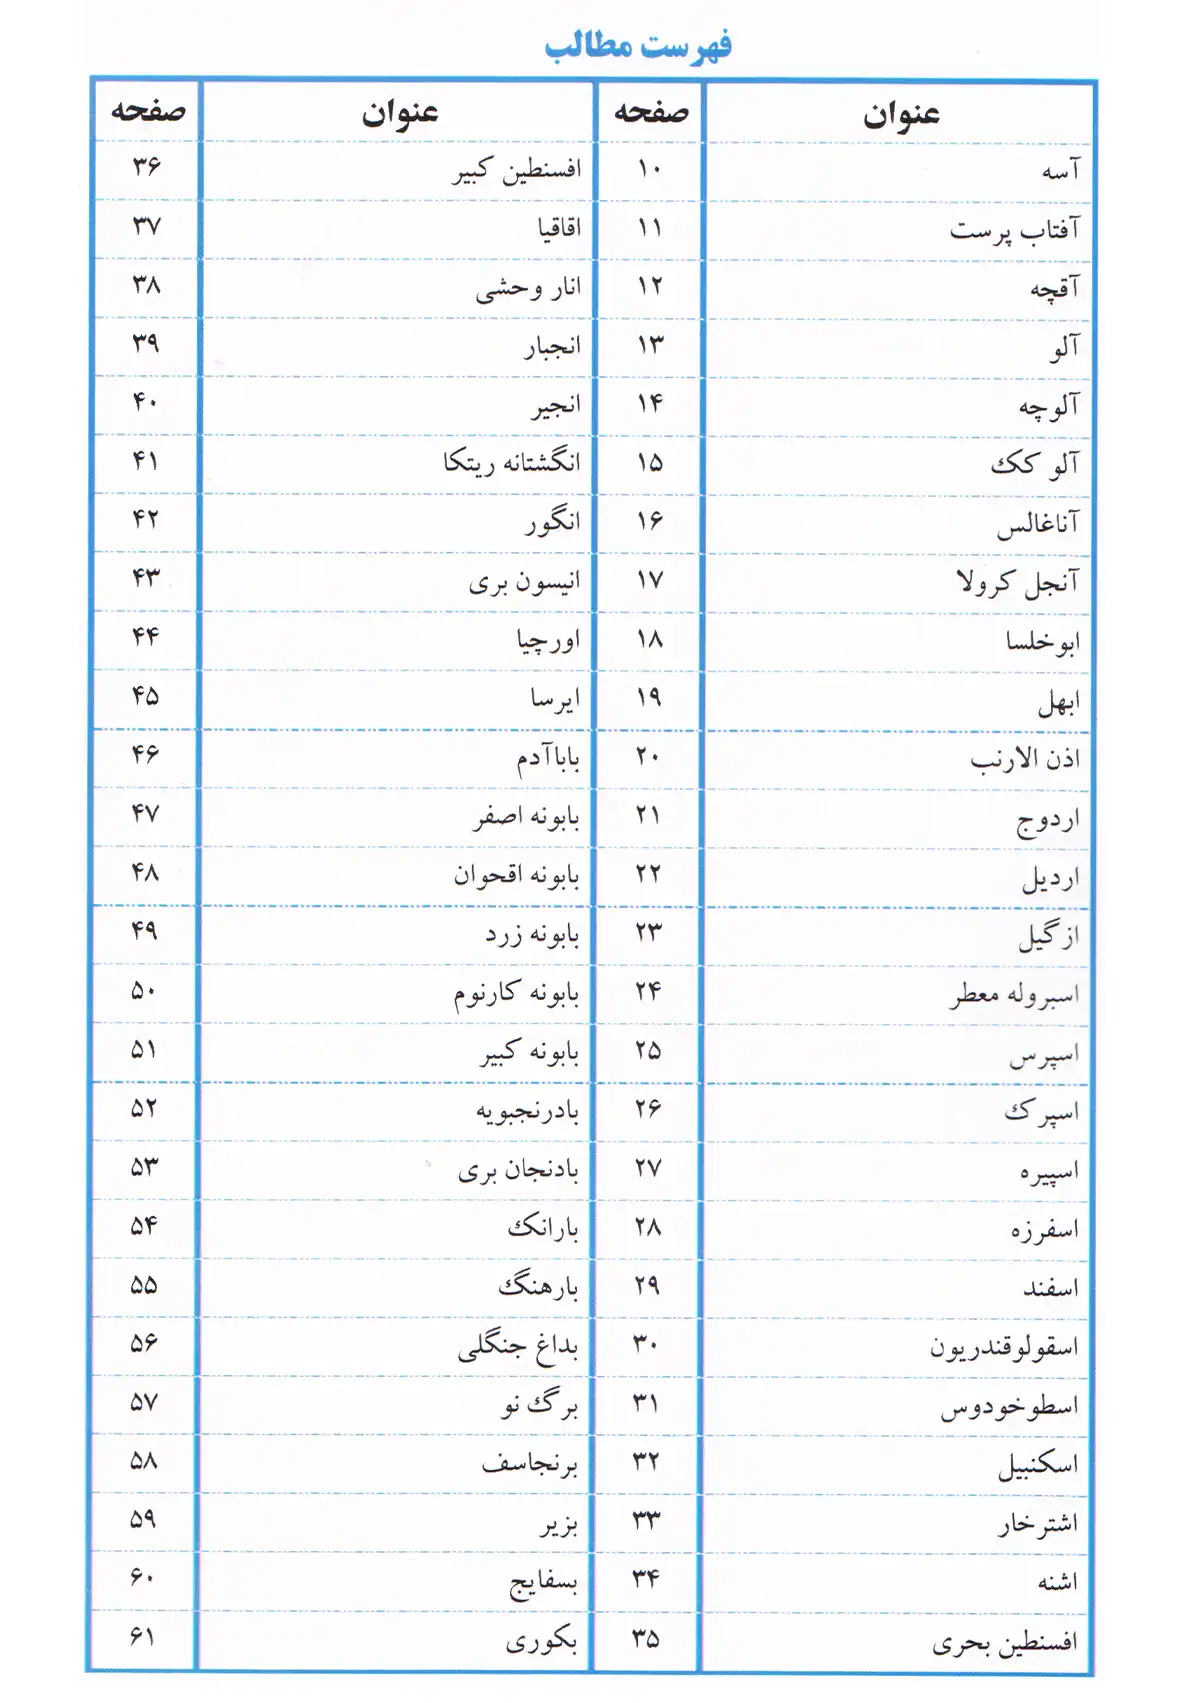 فهرست مطالب
عنوان صفحه عنوان صفحه
آسه ۱۰ افسنطین کبیر ۳۶
آفتاب پرست ۱۱ اقاقیا ۳۷
آقچه ۱۲ انار وحشی ۳۸
آلو ۱۳ انجبار ۳۹
آلوچه ۱۴ انجیر ۴۰
آلو کک ۱۵ انگشتانه ریتکا ۴۱
آناغالس ۱۶ انگور ۴۲
آنجل کرولا ۱۷ انیسون بری ۴۳
ابوخلسا ۱۸ اورچیا ۴۴
ابهل ۱۹ ایرسا ۴۵
اذن الارنب ۲۰ باباآدم ۴۶
اردوج ۲۱ بابونه اصفر ۴۷
اردیل ۲۲ بابونه اقحوان ۴۸
ازگیل ۲۳ بابونه زرد ۴۹
اسبروله معطر ۲۴ بابونه کارنوم ۵۰
اسپرس ۲۵ بابونه کبیر ۵۱
اسپرک ۲۶ بادرنجبویه ۵۲
اسپیره ۲۷ بادنجان بری ۵۳
اسفرزه ۲۸ بارانک ۵۴
اسفند ۲۹ بارهنگ ۵۵
اسقولوقندریون ۳۰ بداغ جنگلی ۵۶
اسطوخودوس ۳۱ برگ نو ۵۷
اسکنبیل ۳۲ برنجاسف ۵۸
اشترخار ۳۳ بزیر ۵۹
اشنه ۳۴ بسفایج ۶۰
افسنطین بحری ۳۵ بکوری ۶۱